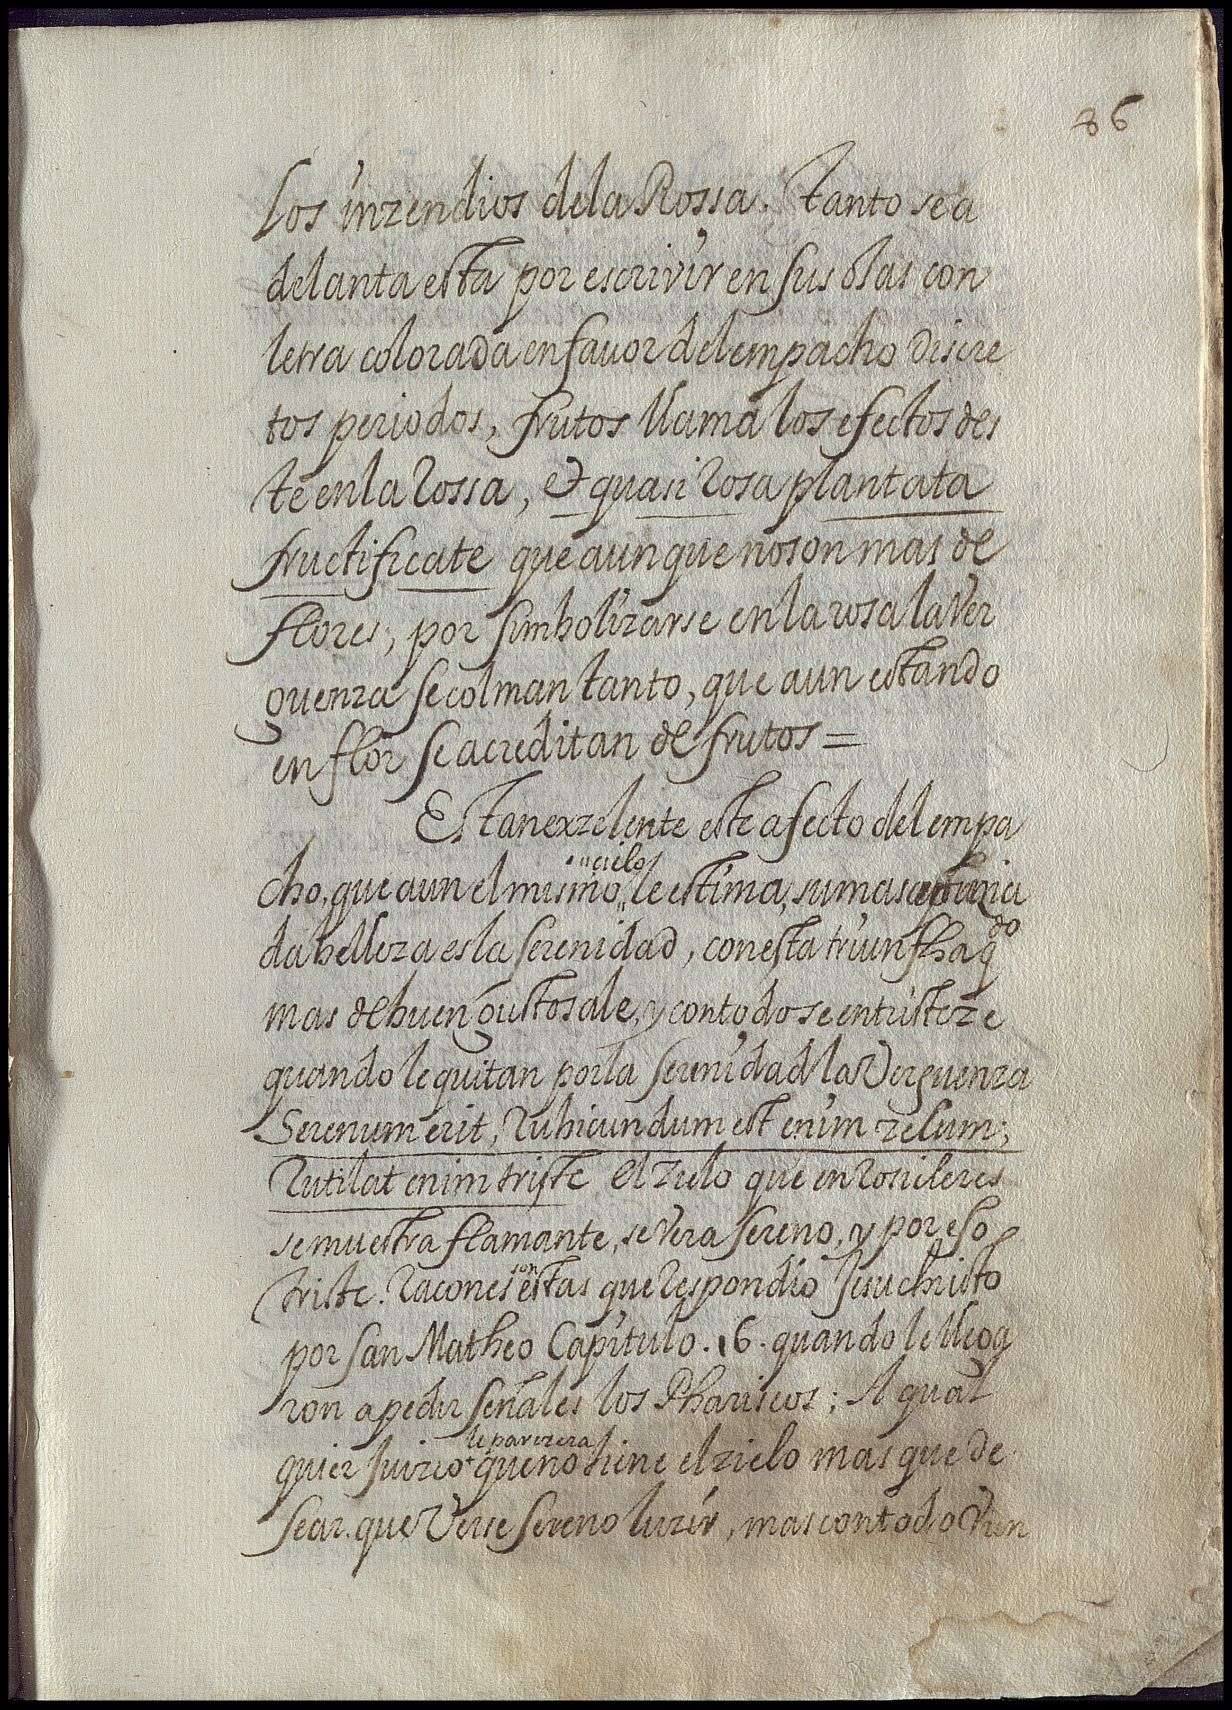 86
Los inzendios dela Rossa. Tanto se a
delanta esta por escrivir en sus olas con
letra colorada en favor del empacho discre
tos periodos, frutos llama los efectos des
te en la rossa, et quasi rosa plantata
fructificate que aunque no son mas de
flores, por simbolizarse en la rosa la ver
guenza se colman tanto, que aun estando
en flor se acreditan de frutos =
Es tan exzelente este afecto del empa
cielo
cho, que aun el mismo le estima, su mas
da belleza es la serenidad, con esta triunfha qdo
mas de buen gusto sale, y con todo se entristeze
quando le quitan por la serenidad la Verguenza
Serenum erit, rubicundum est enim zelum;
Rutilat enim triste el zielo que en rosicleres
se muestra flamante, se vera sereno, y por eso
son
triste. Racones estas que respondio Jesuchristo
por san Matheo Capitulo. 16. quando le llega
ron a pedir señales los Phariseos; A qual
le parezera
quier Juizio que no tiene el zielo mas que de
sear. que Verse sereno luzir, mas con todo Vien